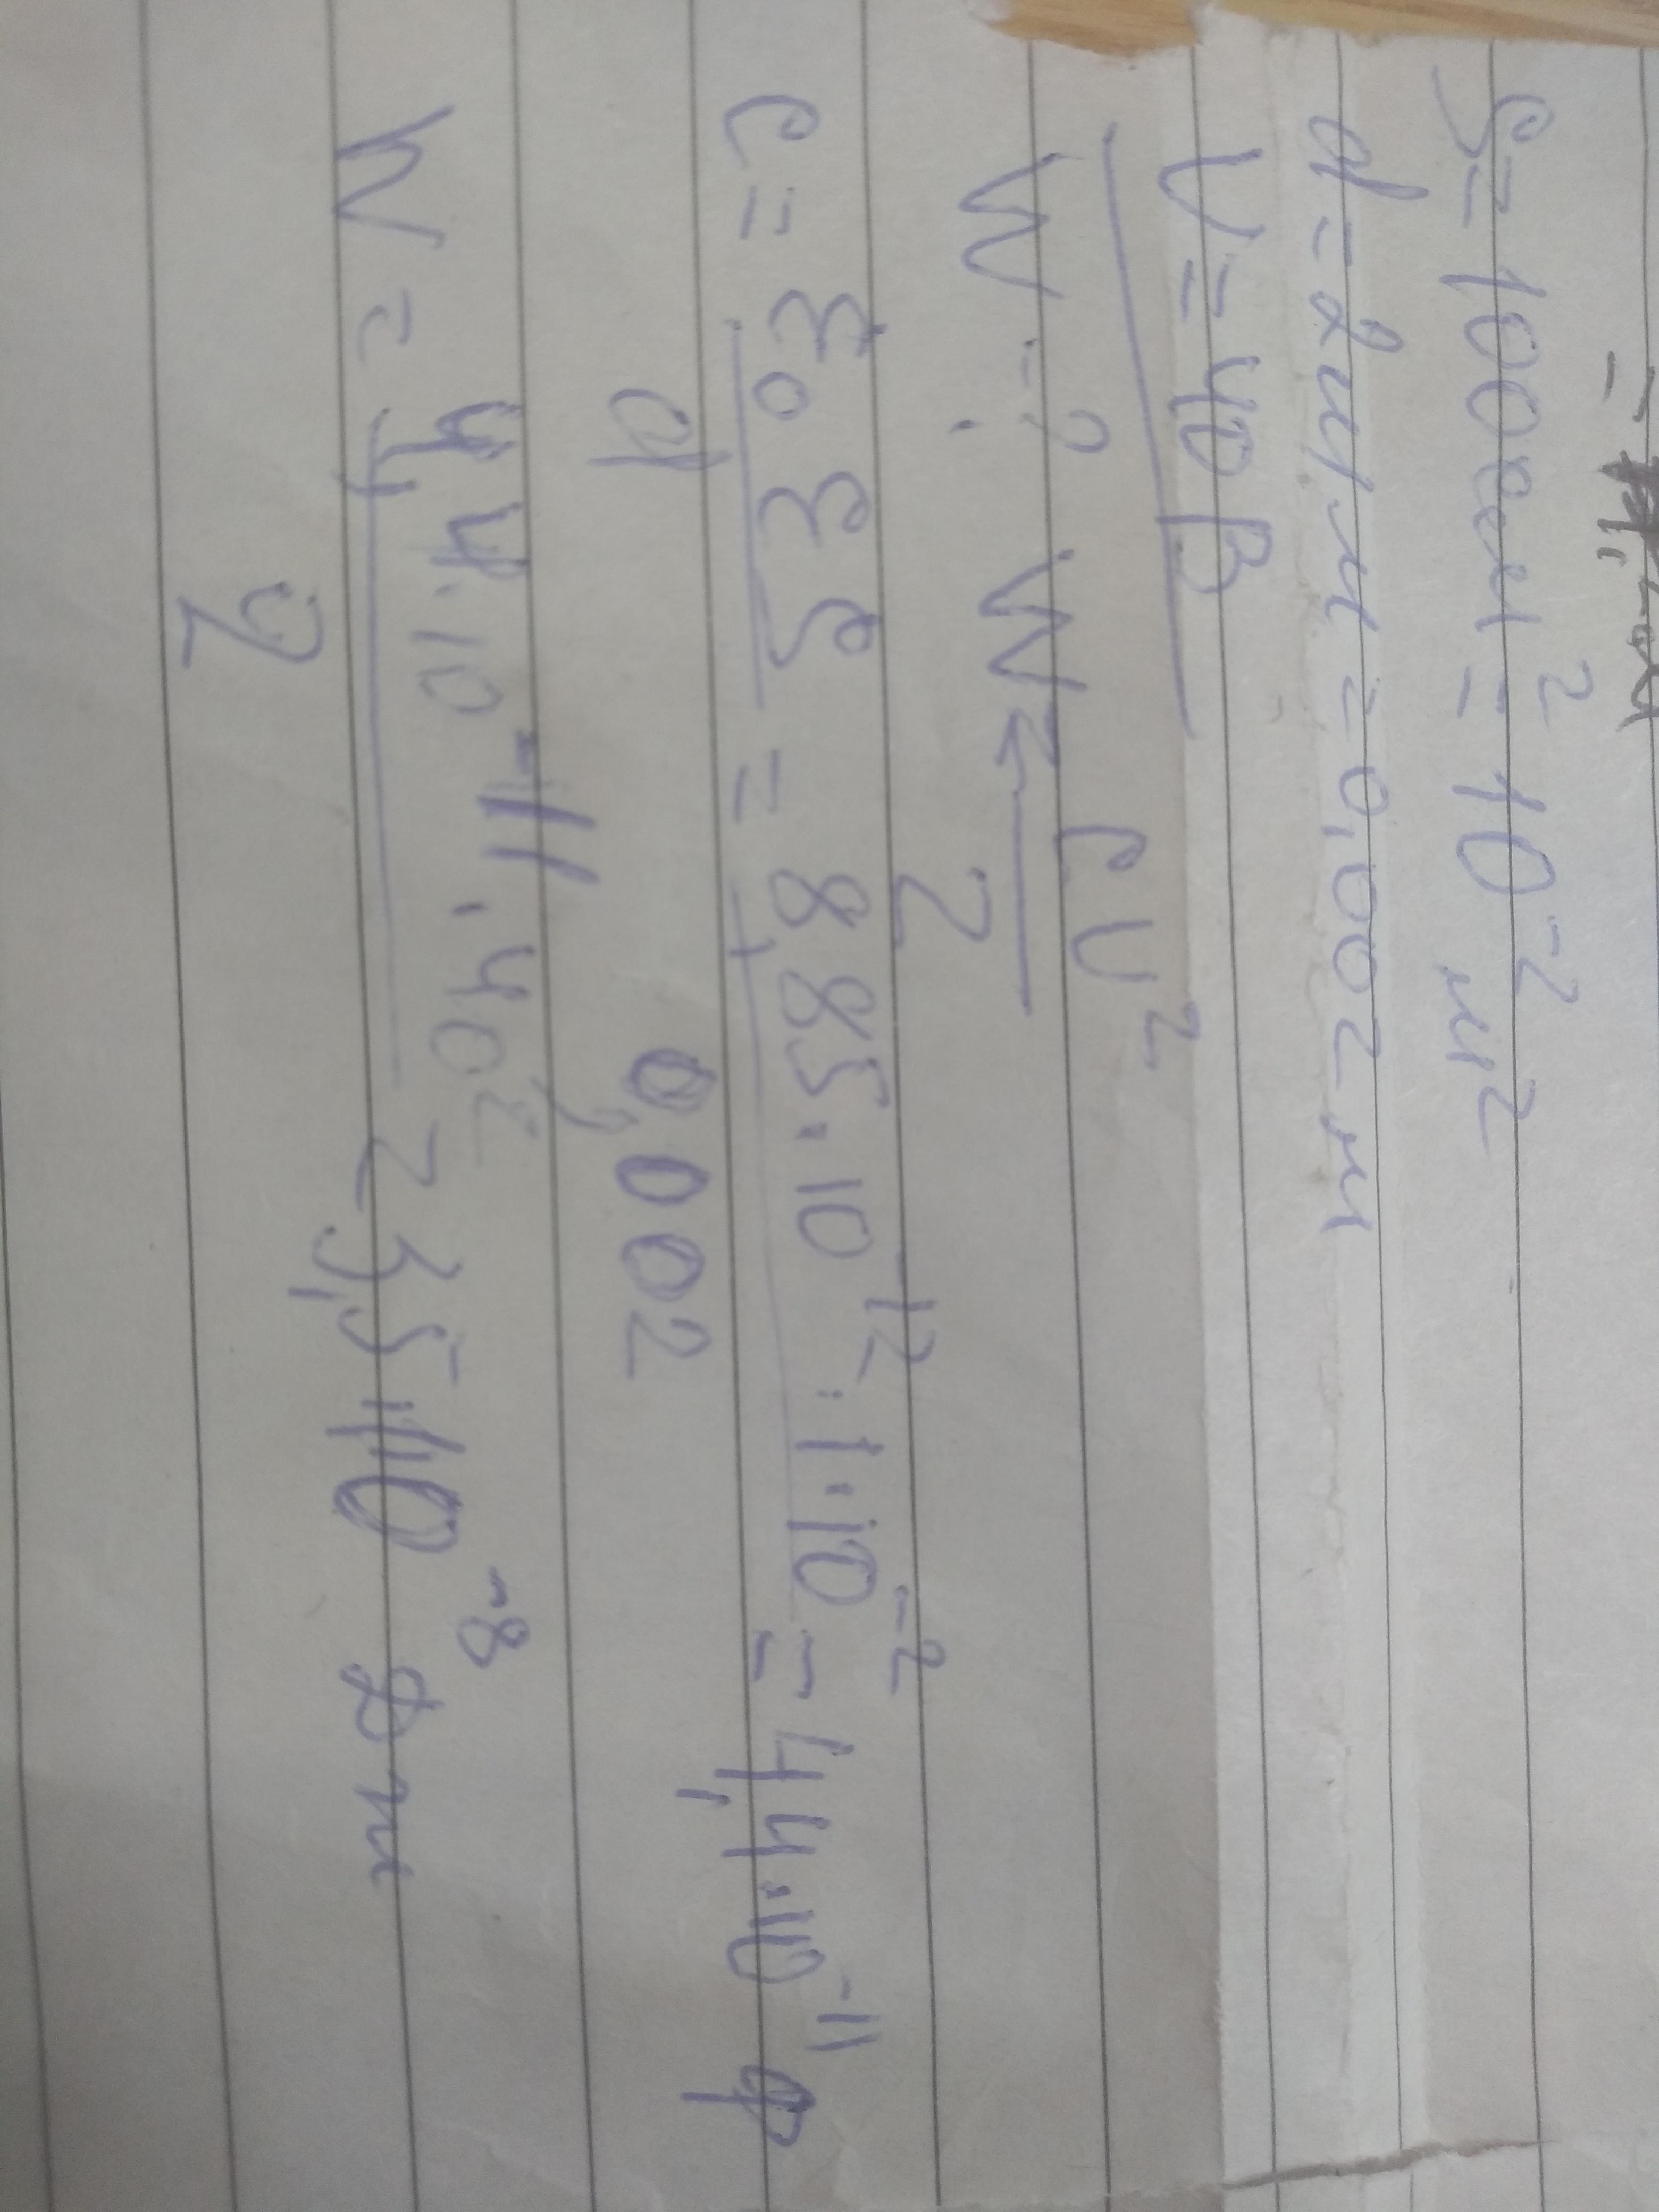 S = 100см² = 10⁻² м²
d = 2мм = 0,002 м
U = 40 В
W - ? W = CU²/2
C = ε₀εS/d = 8,85·10¹²·1·10⁻²/0,002 = 4,4·10⁻¹¹ Ф
W = 4,4·10⁻¹¹·40²/2 = 3,5·10⁻⁸ Дж